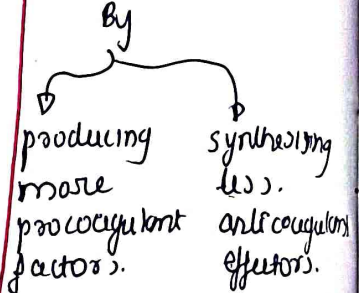 By
producing
more
procoagulant
factors.
synthesizing
less.
anticoagulant
effectors.